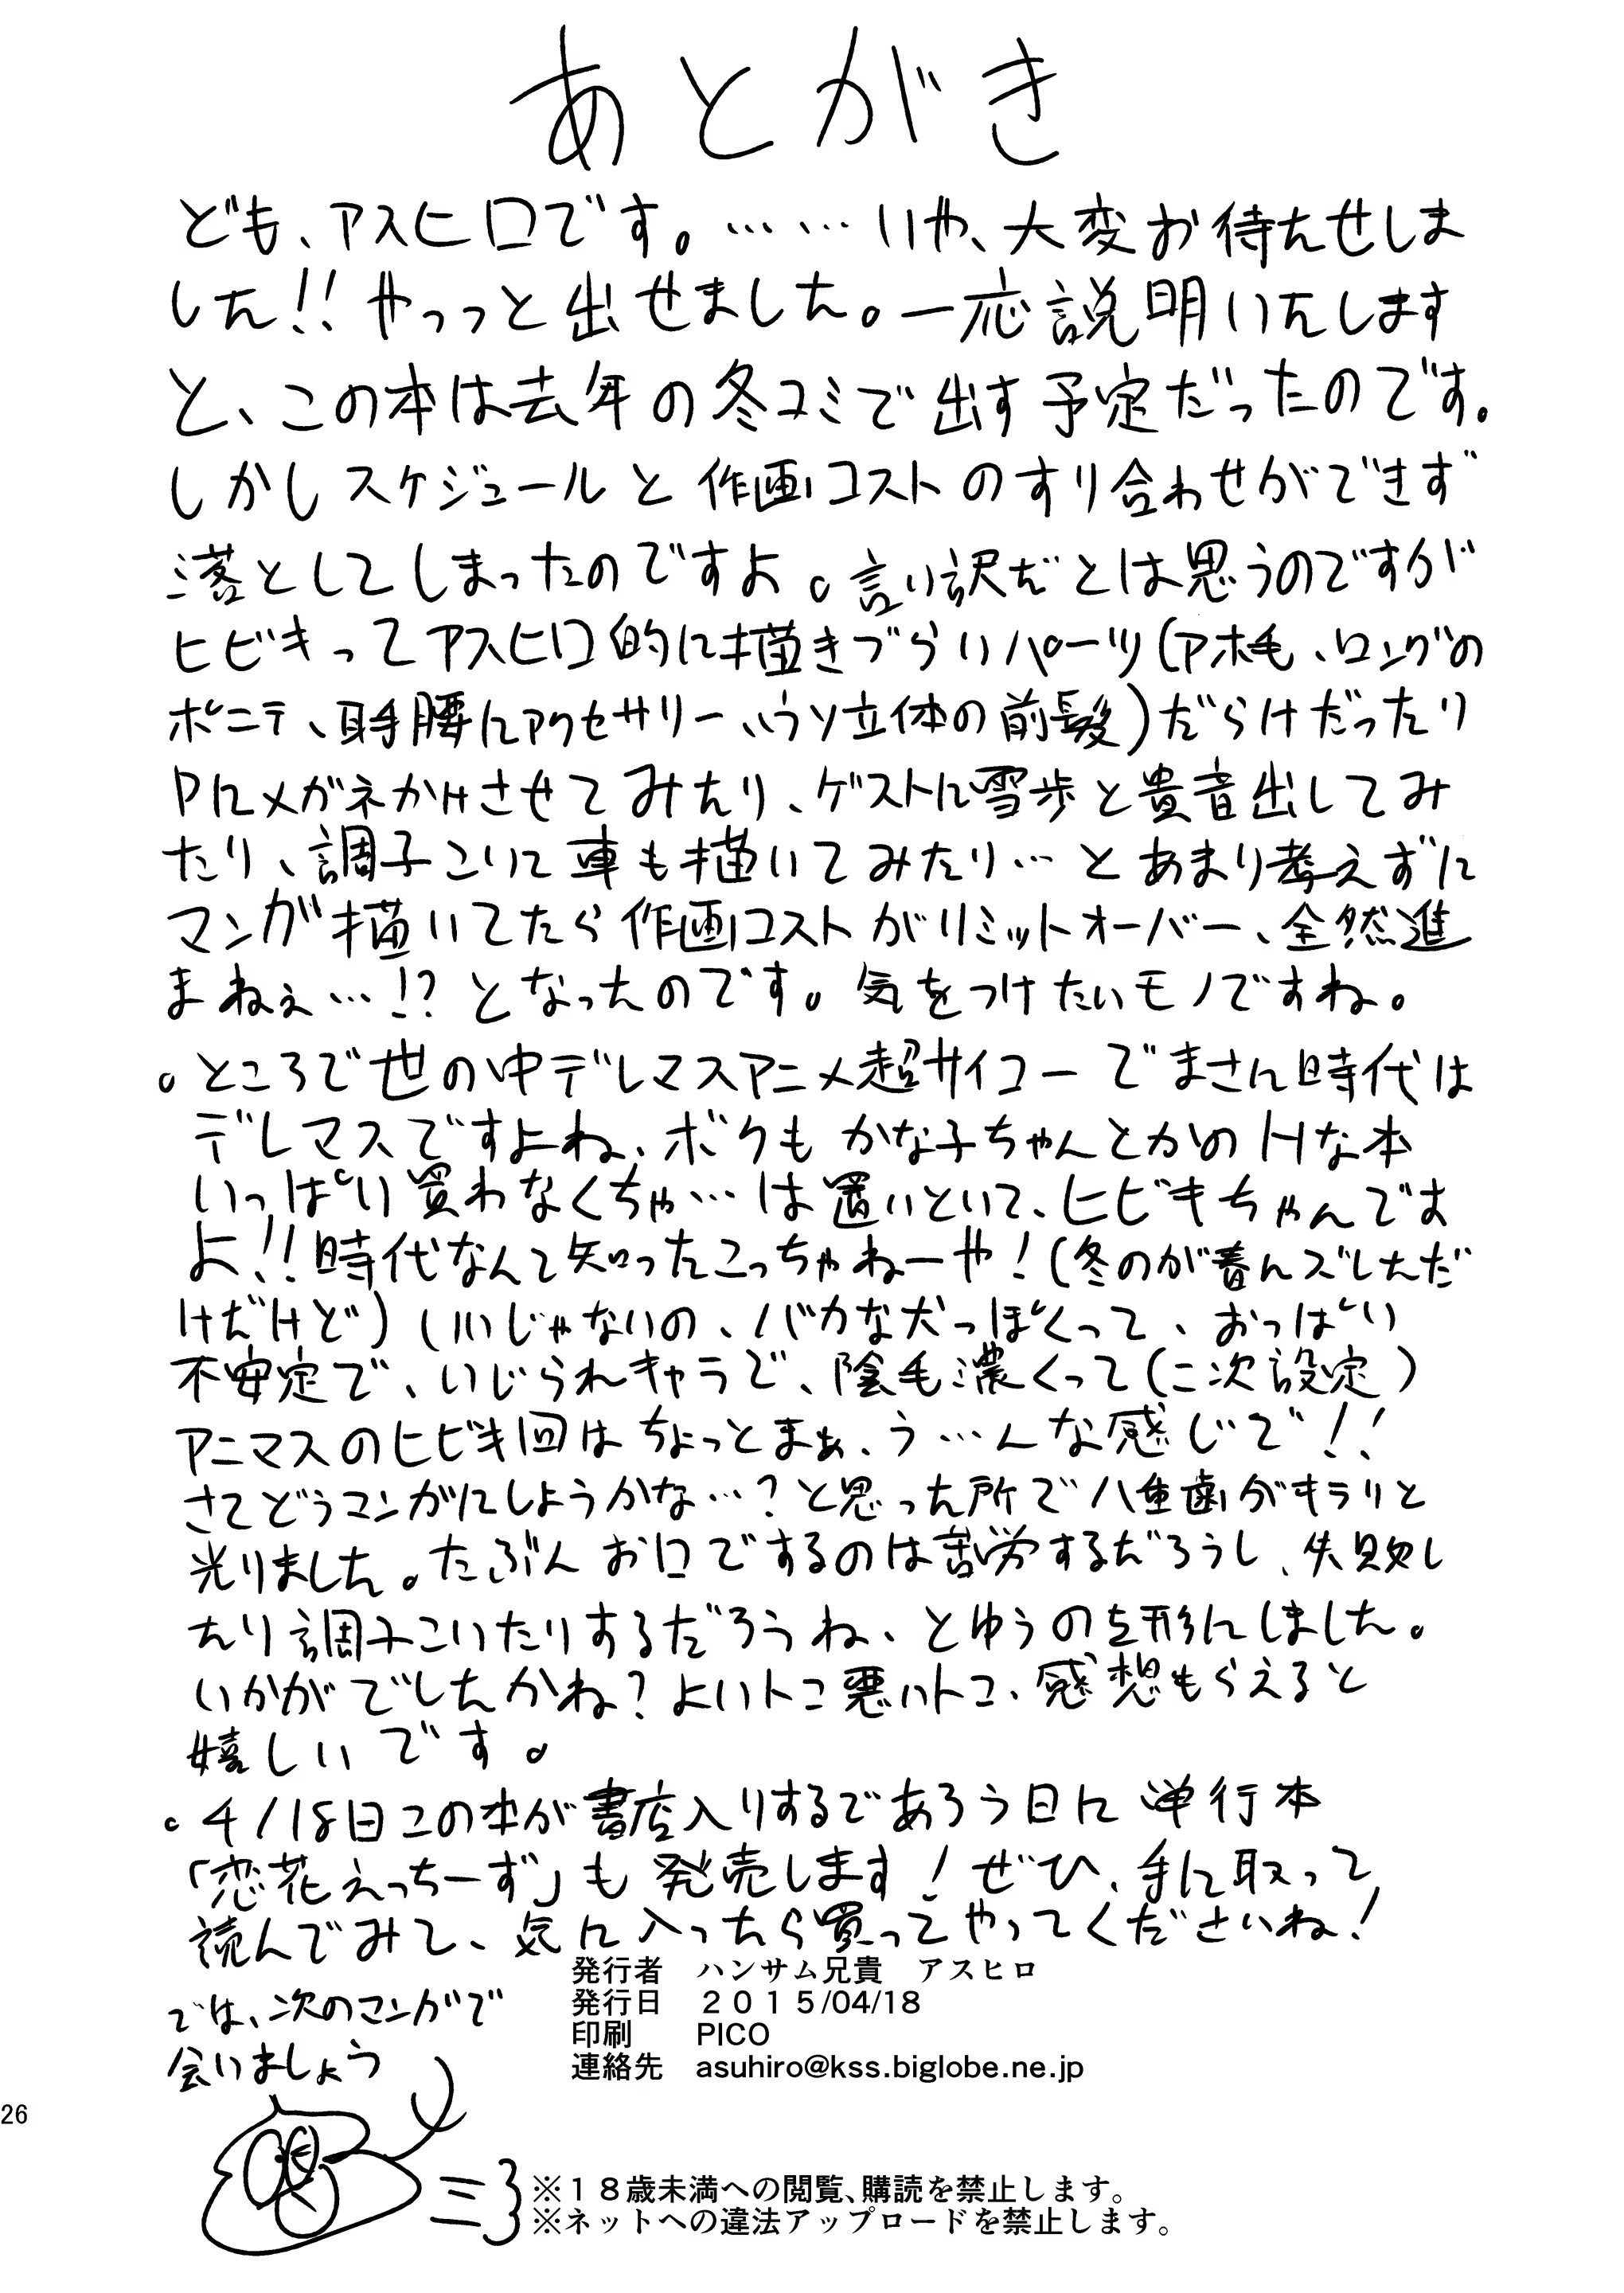 あとがき
ども、アスヒロです。……いや、大変お待たせしま
した!! やっっと出せました。一応説明いたします
と、この本は去年の冬コミで出す予定だったのです。
しかしスケジュールと作画コストのすり合わせができず
落としてしまったのですよ。言い訳だとは思うのですが
ヒビキってアスヒロ的に描きづらいパーツ(アホ毛、ロングの
ポニテ、耳手腰にアクセサリー、ウソ立体の前髪)だらけだったり
Pにメガネかけさせてみたり、ゲストに雪歩と貴音出してみ
たり、調子こいて車も描いてみたり…とあまり考えずに
マンガ描いてたら作画コストがリミットオーバー、全然進
まねぇ…!?となったのです。気をつけたいモノですね。
。ところで世の中デレマスアニメ超サイコーでまさに時代は
デレマスですよね、ボクもかな子ちゃんとかのHな本
いっぱい買わなくちゃ…は置いといて、ヒビキちゃんです
よ!!時代なんて知ったこっちゃねーや!(冬のが春にズレただ
けだけど)いいじゃないの、バカな犬っぽくって、おっぱい
不安定で、いじられキャラで、陰毛濃くって(二次設定)
アニマスのヒビキ回はちょっとまぁ、う…んな感じで!!
さてどうマンガにしようかな…?と思った所で八重歯がキラリと
光りました。たぶんお口でするのは苦労するだろうし、失敗し
たり調子こいたりするだろうね、とゆうのを形にしました。
いかがでしたかね?よいトコ悪いトコ、感想もらえると
嬉しいです。
。4/18日この本が書店入りするであろう日に単行本
「恋花えっちーず」も発売します!ぜひ、手に取って
読んでみて、気に入ったら買ってやってくださいね!
では、次のマンガで
会いましょう
発行者　ハンサム兄貴　アスヒロ
発行日　２０１５/04/18
印刷　PICO
連絡先　asuhiro@kss.biglobe.ne.jp
26
※１８歳未満への閲覧、購読を禁止します。
※ネットへの違法アップロードを禁止します。